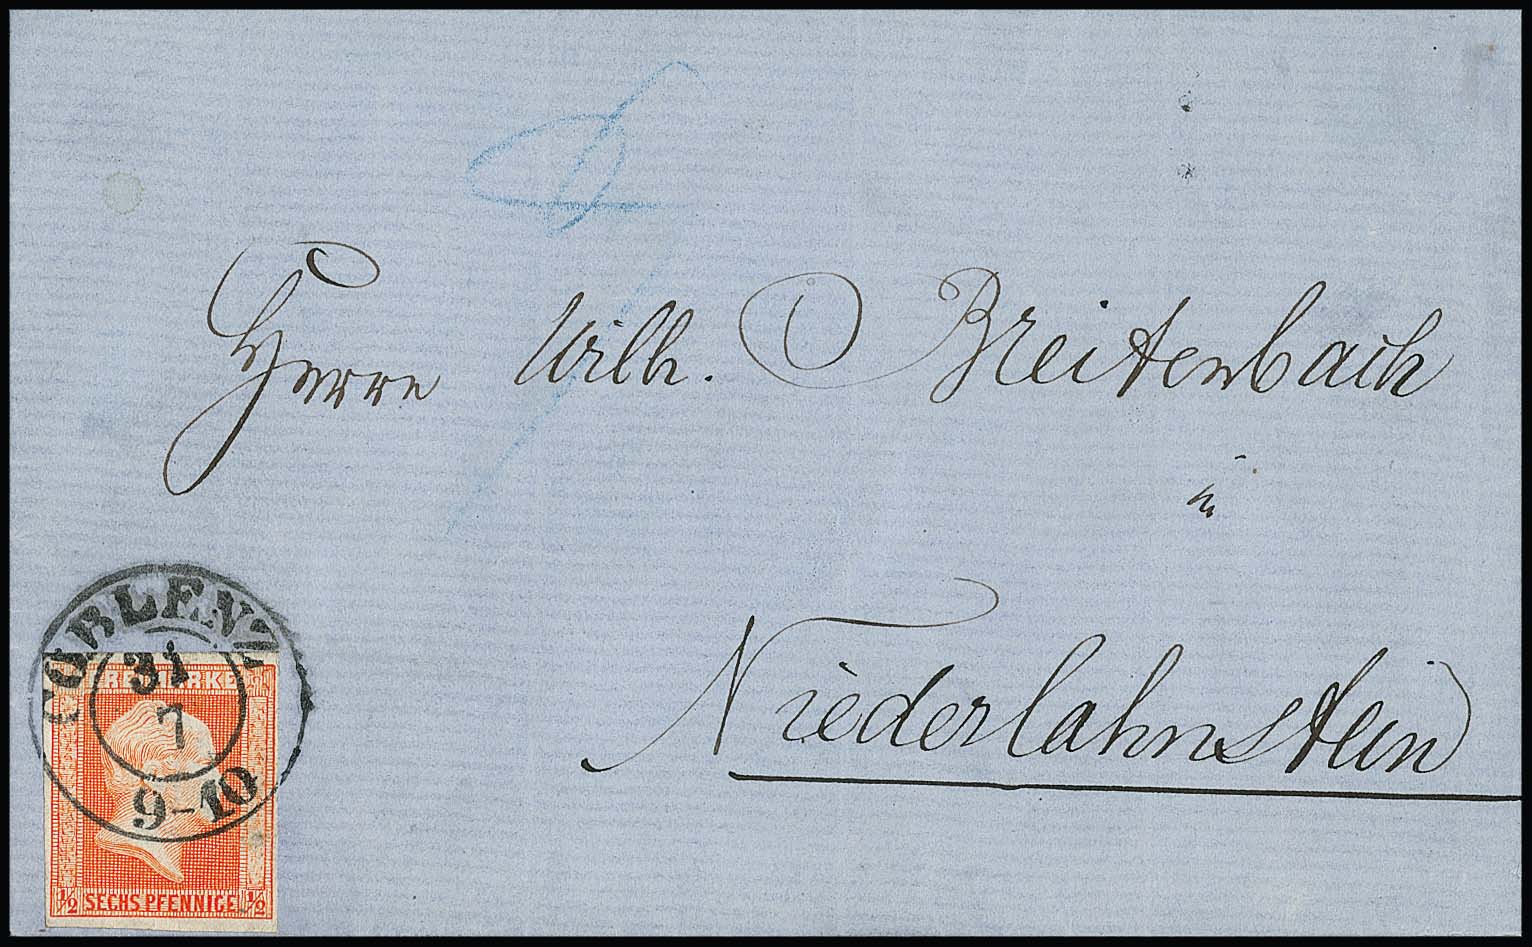 Herrn Wilh. Breitenbach
in
Niederlahnstein
COBLENZ
31
7
9-10
FREIMARKE
1/2 SECHS PFENNIGE 1/2